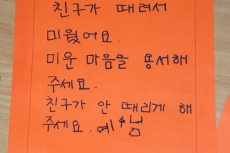 친구가 때려서
미웠어요.
미운 마음을 용서해
주세요.
친구가 안 때리게 해
주세요. 예수님